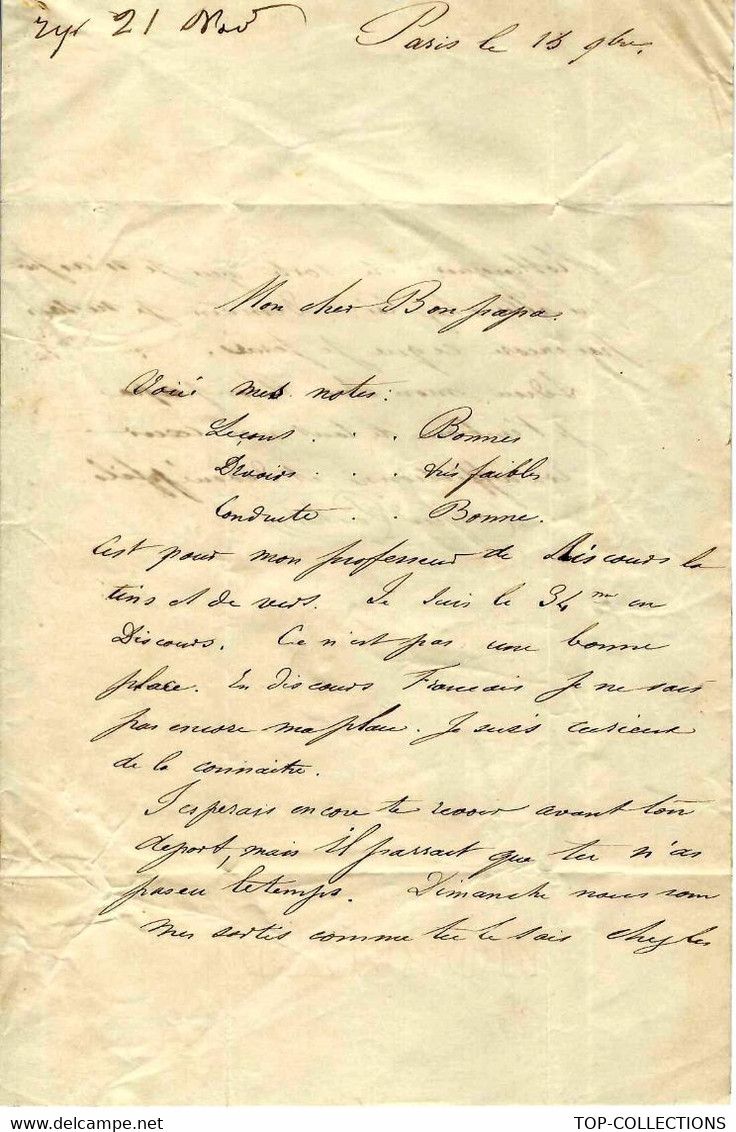 21 Nov
Paris le 13 9bre.
Mon cher Bon papa.
Voici mes notes:
Leçons . . . Bonnes
Devoirs . . . très faibles
Conduite . . Bonne.
C'est pour mon professeur de Discours la
tins et de vers. Je suis le 34me en
Discours. Ce n'est pas une bonne
place. En discours Francais je ne sais
pas encore ma place. Je suis curieux
de la connaitre.
J'esperais encore te revoir avant ton
depart, mais il parrait que tu n'as
pas eu le temps. Dimanche nous som
mes sortis comme tu le sais chez les
TOP-COLLECTIONS